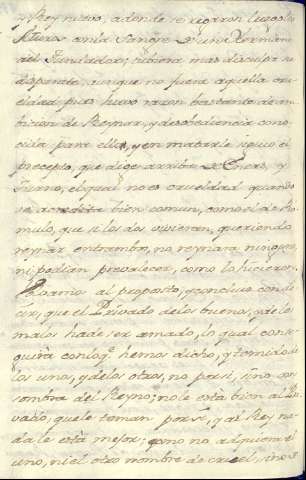 y Rey nuevo, adonde se regaron luego los
con la Sangre de una hermano
del fundador; tubiera mas disculpa su
aunque no fuera aquella cru-
eldad pues huvo razon bastante de am-
bicion de Reynar, y desobediencia cono-
cida para ello, y en matarle siguio el
precepto, que dige arriba de Eneas, y
Turno, el qual no es crueldad quando
se acredita bien comun, como el de Ro-
mulo, que si los dos vivieran, queriendo
reynar entrambos, no reynara ninguno,
ni podian prevalecer, como lo hicieron.
Bolbamos al proposito, y concluio con de-
cir, que el Privado de los buenos, y de los
malos ha de ser amado, lo qual conse-
guira con lo q.e hemos dicho, y temido de
los unos, y de los otros, no por si, sino por
sombra del Reyno; no le està bien al Pri-
vado, que le teman por si, y al Rey na-
da le està mejor; como no adquiera el
uno, ni el otro nombre de cruel, sino